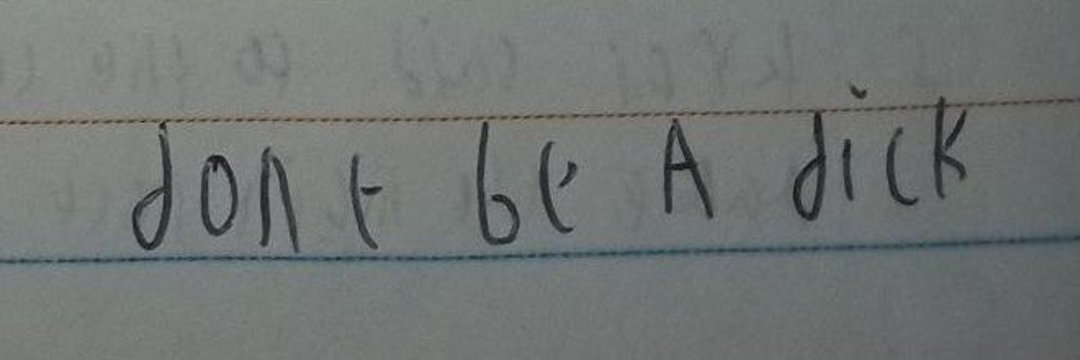 dont be A dick